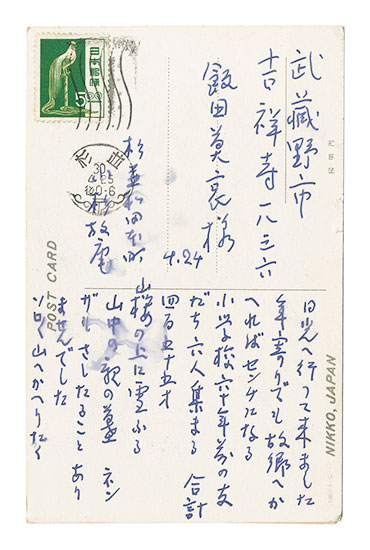 日本郵便
500
杉並
30
4.25
後0-6
武蔵野市
吉祥寺一八三六
飯田莫哀様
4.24
杉並和田本町
小杉放庵
日光へ行つて来ました
年寄りでも故郷へか
へればセンチになる
小学校六十年前の友
だち六人集まる 合計
四百五十五才
山桜の上に雪ふる
山中の親の墓
さしたることあり
ませんでした
ソロソロ山へかへりたく
POST CARD
NIKKO, JAPAN